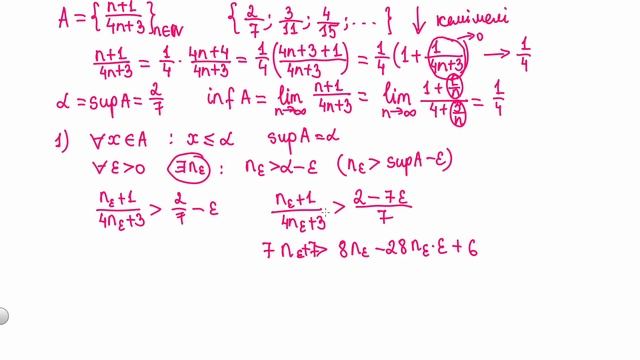 A = {n+1/4n+3}n∈ℕ {2/7; 3/11; 4/15; ...} ↓
n+1/4n+3 = 1/4 · 4n+4/4n+3 = 1/4 (4n+3+1/4n+3) = 1/4 (1 + 1/4n+3) → 1/4 →0
α = sup A = 2/7 inf A = lim n→∞ n+1/4n+3 = lim n→∞ 1+1/n/4+3/n = 1/4
1) ∀x∈A : x ≤ α sup A = α
∀ε>0 ∃nε : nε > α − ε (nε > sup A − ε)
nε+1/4nε+3 > 2/7 − ε nε+1/4nε+3 > 2−7ε/7
7nε+7 > 8nε − 28nε·ε + 6